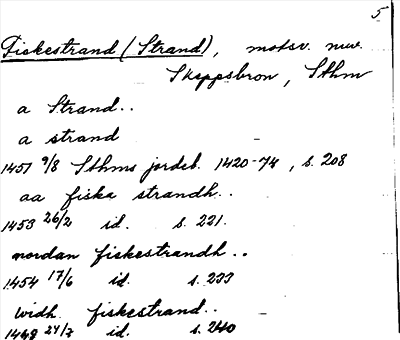 5
Fiskestrand (Strand), motsv. nuv.
Skeppsbron, Sthm
a Strand..
a strand
1451 9/8 Sthms jordeb. 1420-74, s. 208
aa fiska strandh..
1453 26/2 id. s. 221.
nordan fiskestrandh..
1454 17/6 id. s. 233
widh fiskestrand..
id. s. 240